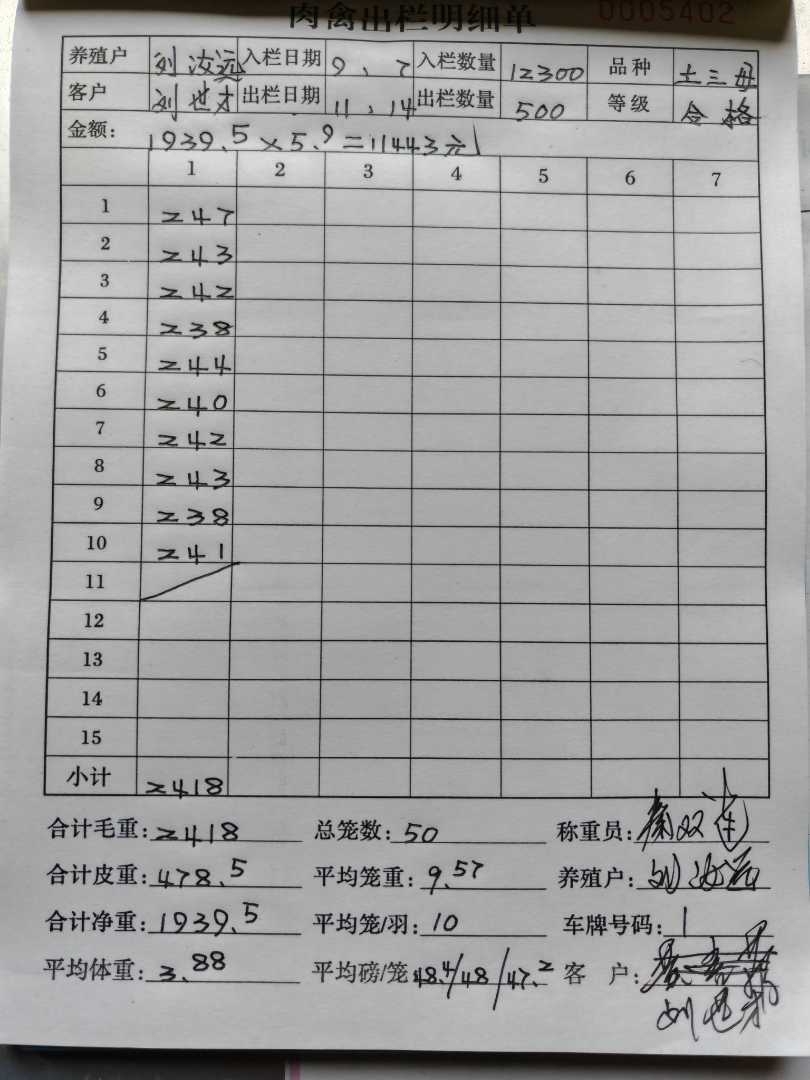 肉禽出栏明细单 0005402
养殖户 刘汝远 入栏日期 9、7 入栏数量 12300 品种 土三母
客户 刘世才 出栏日期 11、14 出栏数量 500 等级 合格
金额: 1939.5×5.9=11443元
1 2 3 4 5 6 7
1 247
2 243
3 242
4 238
5 244
6 240
7 242
8 243
9 238
10 241
11
12
13
14
15
小计 2418
合计毛重: 2418 总笼数: 50 称重员:
合计皮重: 478.5 平均笼重: 9.57 养殖户: 刘汝远
合计净重: 1939.5 平均笼/羽: 10 车牌号码: 1
平均体重: 3.88 平均磅/笼 48.4/48/47.2 客户:
刘世才